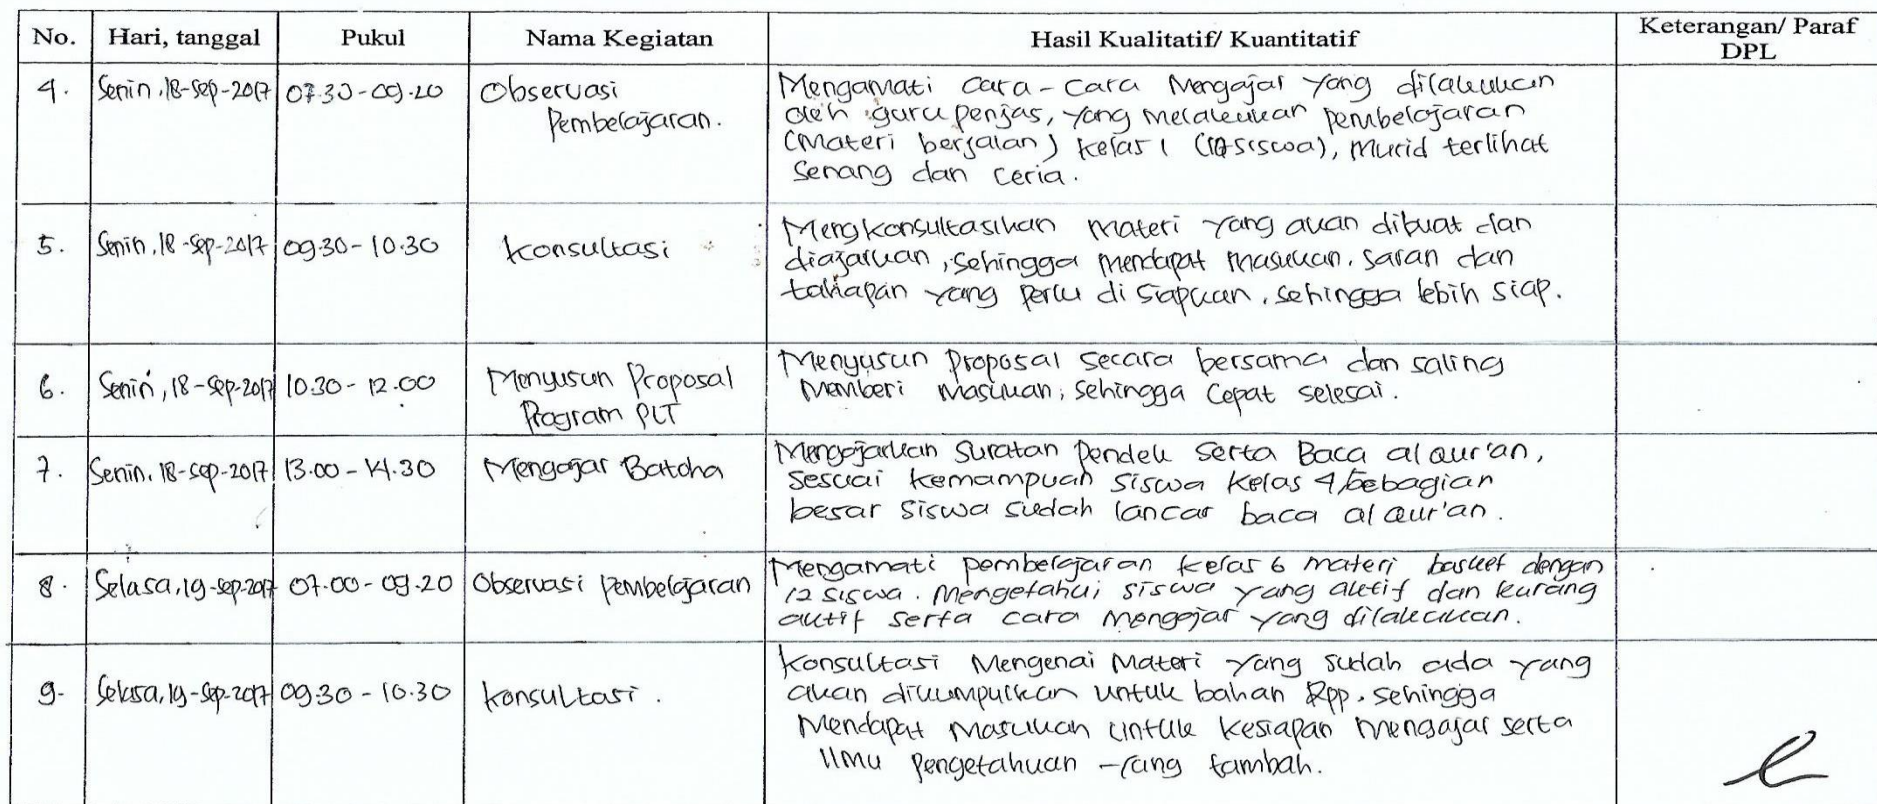 No. Hari, tanggal Pukul Nama Kegiatan Hasil Kualitatif/ Kuantitatif Keterangan/ Paraf DPL
4. Senin, 18-Sep-2017 07.30-09.20 Observasi Pembelajaran. Mengamati cara-cara Mengajar yang dilakukan
oleh guru penjas, yang melakukan pembelajaran
(Materi berjalan) kelas 1 (siswa), Murid terlihat
Senang dan ceria.
5. Senin, 18-Sep-2017 09.30-10.30 Konsultasi Mengkonsultasikan materi yang akan dibuat dan
diajarkan, sehingga mendapat masukan, saran dan
tahapan yang perlu di siapkan, sehingga lebih siap.
6. Senin, 18-Sep-2017 10.30-12.00 Menyusun Proposal Program PLT Menyusun Proposal secara bersama dan saling
Memberi Masukan, sehingga cepat selesai.
7. Senin, 18-Sep-2017 13.00-14.30 Mengajar Batcha Mengajarkan Suratan Pendek serta Baca al qur'an,
sesuai kemampuan siswa kelas 4, sebagian
besar siswa sudah lancar baca al qur'an.
8. Selasa, 19-Sep-2017 07.00-09.20 Observasi Pembelajaran Mengamati pembelajaran kelas 6 materi basket dengan
12 siswa. Mengetahui siswa yang aktif dan kurang
aktif serta cara mengajar yang dilakukan.
9- Selasa, 19-Sep-2017 09.30-10.30 Konsultasi. Konsultasi Mengenai Materi yang sudah ada yang
akan dikumpulkan untuk bahan Rpp. sehingga
Mendapat Masukan untuk kesiapan mengajar serta
Ilmu Pengetahuan yang tambah.